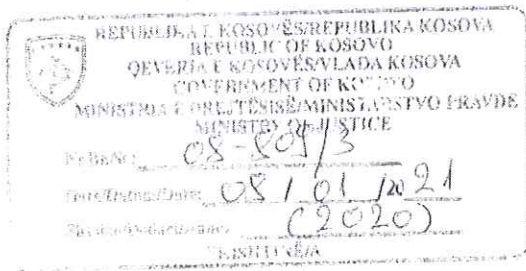 REPUBLIKA E KOSOVËS/REPUBLIKA KOSOVA
REPUBLIC OF KOSOVO
QEVERIA E KOSOVËS/VLADA KOSOVA
GOVERNMENT OF KOSOVO
MINISTRIA E DREJTËSISË/MINISTARSTVO PRAVDE
MINISTRY OF JUSTICE
Nr/Br/No: 08-809/3
Date/Datum/Date: 08 / 01 /20 21
(2020)
PRISHTINË/A